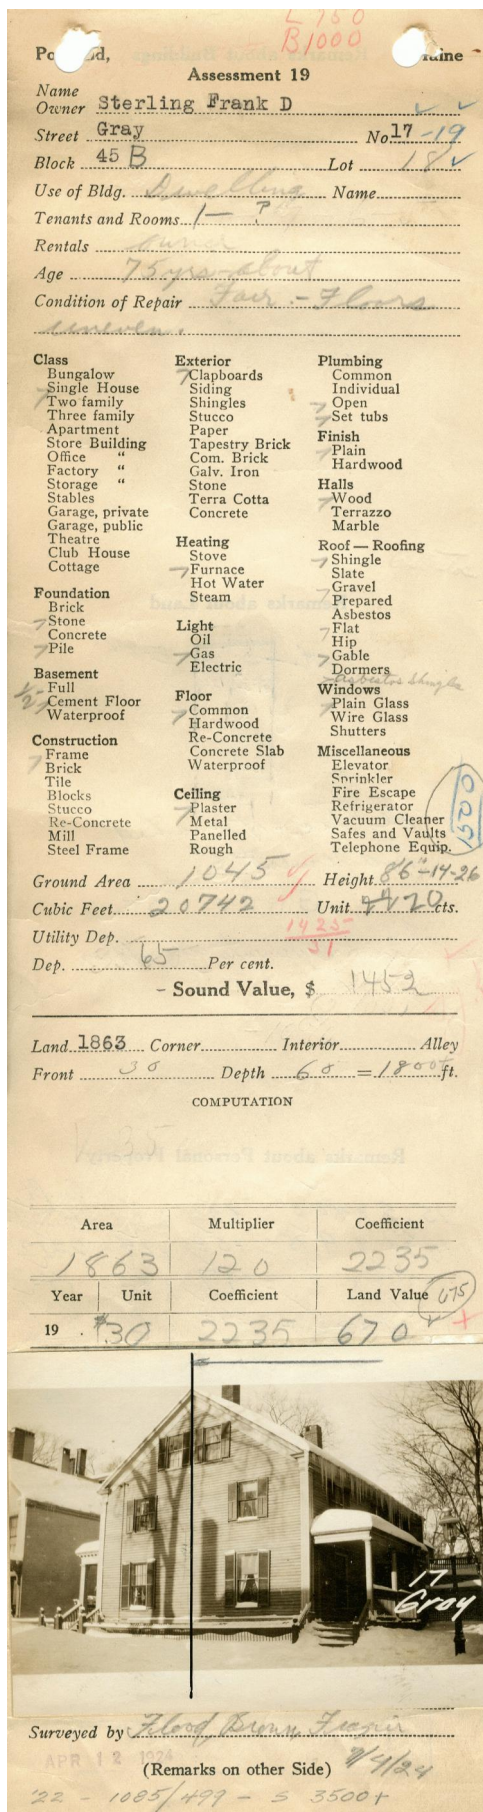 L 750
B1000
Po nd, aine
Assessment 19
Name
Owner Sterling Frank D
Street Gray No 17-19
Block 45 B Lot 18
Use of Bldg. Dwelling Name
Tenants and Rooms 1 - ?
Rentals owner
Age 75 yrs-about
Condition of Repair Fair - Floors
uneven.
Class
Bungalow
Single House
Two family
Three family
Apartment
Store Building
Office "
Factory "
Storage "
Stables
Garage, private
Garage, public
Theatre
Club House
Cottage
Foundation
Brick
Stone
Concrete
Pile
Basement
1/2 Full
Cement Floor
Waterproof
Construction
Frame
Brick
Tile
Blocks
Stucco
Re-Concrete
Mill
Steel Frame
Exterior
Clapboards
Siding
Shingles
Stucco
Paper
Tapestry Brick
Com. Brick
Galv. Iron
Stone
Terra Cotta
Concrete
Heating
Stove
Furnace
Hot Water
Steam
Light
Oil
Gas
Electric
Floor
Common
Hardwood
Re-Concrete
Concrete Slab
Waterproof
Ceiling
Plaster
Metal
Panelled
Rough
Plumbing
Common
Individual
Open
Set tubs
Finish
Plain
Hardwood
Halls
Wood
Terrazzo
Marble
Roof — Roofing
Shingle
Slate
Gravel
Prepared
Asbestos
Flat
Hip
Gable
Dormers
Asbestos Shingles
Windows
Plain Glass
Wire Glass
Shutters
Miscellaneous
Elevator
Sprinkler
Fire Escape
Refrigerator
Vacuum Cleaner
Safes and Vaults
Telephone Equip.
Ground Area 1045 Height 8'6"-14-26
Cubic Feet 20742 Unit 20 cts.
Utility Dep. 1425
51
Dep. 65 Per cent.
- Sound Value, $ 1452
Land 1863 Corner Interior Alley
Front 30 Depth 60 = 1800 ft.
COMPUTATION
Area Multiplier Coefficient
1863 120 2235
Year Unit Coefficient Land Value 675
19 $30 2235 670
17
Gray
Surveyed by Flood Brown Frazier
APR 12 1924
(Remarks on other Side) 7/4/24
'22 - 1085/499 - S 3500+